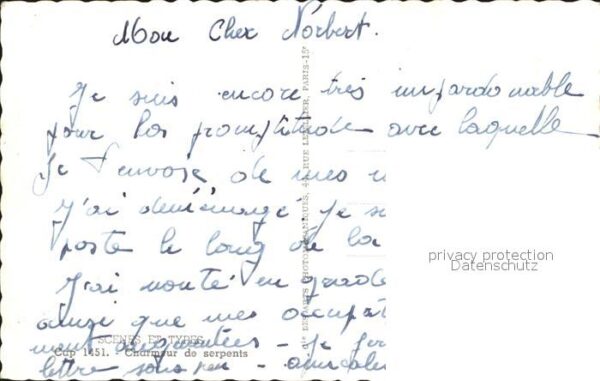 Mon Cher Norbert.
Je suis encore très impardonnable
pour la promptitude avec laquelle
Je t'envoie de mes n
J'ai déménagé. Je s
poste le long de la
J'ai monté en grade
ainsi que mes occupat
ment augmentées - Je fer
lettre sous peu - amicale
SCÈNES ET TYPES
Cap 1451. Charmeur de serpents
PHOTOMÉCANIQUES, 44, RUE LETELLIER, PARIS-15e
privacy protection
Datenschutz